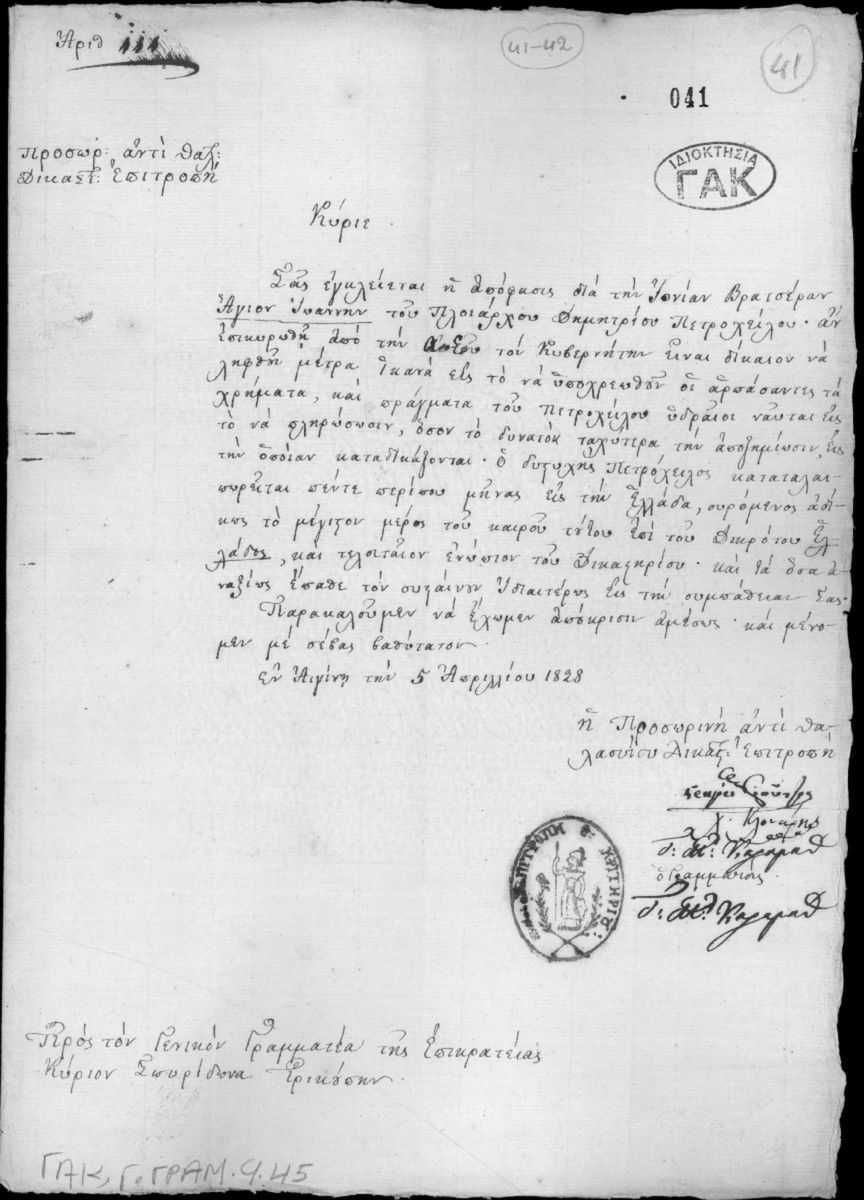 Ἀριθ 111
41-42
41
041
ΙΔΙΟΚΤΗΣΙΑ
ΓΑΚ
Προσωρ: ἀντὶ θαλ:
Δικαστ: Ἐπιτροπὴ
Κύριε
Σᾶς ἐγκλείεται ἡ ἀπόφασις διὰ τὴν Ἰονίαν Βρατσέραν
Ἅγιον Ἰωάννην τοῦ Πλοιάρχου Δημητρίου Πετροχείλου· ἂν
ἐπικυρωθῇ ἀπὸ τὴν τὸν Κυβερνήτην εἶναι δίκαιον νὰ
ληφθοῦν μέτρα ἱκανὰ εἰς τὸ νὰ ὑποχρεωθοῦν οἱ ἁρπάσαντες τὰ
χρήματα, καὶ πράγματα τοῦ Πετροχείλου ὑδραῖοι ναῦται εἰς
τὸ νὰ πληρώσωσιν, ὅσον τὸ δυνατὸν ταχύτερα τὴν ἀποζημίωσιν, εἰς
τὴν ὁποίαν καταδικάζονται· ὁ δυστυχὴς Πετρόχειλος καταταλαι-
πωρεῖται πέντε περίπου μῆνας εἰς τὴν Ἑλλάδα, συρόμενος ἀδί-
κως τὸ μέγιστον μέρος τοῦ καιροῦ τούτου ἐπὶ τοῦ Δικρότου Ἑλ-
λάδος, καὶ τελευταῖον ἐνώπιον τοῦ Δικαστηρίου· καὶ τὰ ὅσα ἀ-
ναξίως ἔπαθε τὸν συσταίνουν ἰδιαιτέρως εἰς τὴν συμπάθειαν Σας·
Παρακαλοῦμεν νὰ ἔχωμεν ἀπόκρισιν ἀμέσως· καὶ μένο-
μεν μὲ σέβας βαθύτατον
ἐν Αἰγίνῃ τὴν 5 Ἀπριλλίου 1828
ἡ Προσωρινὴ ἀντὶ θα-
λασσίου Δικαστ: Ἐπιτροπὴ
Χ. Κλονάρης
ὁ Γραμματεύς
ΚΡΙΤΗΡΙΟΥ
Πρὸς τὸν Γενικὸν Γραμματέα τῆς Ἐπικρατείας
Κύριον Σπυρίδωνα Τρικούπην
ΓΑΚ, Γ. ΓΡΑΜ. φ. 45